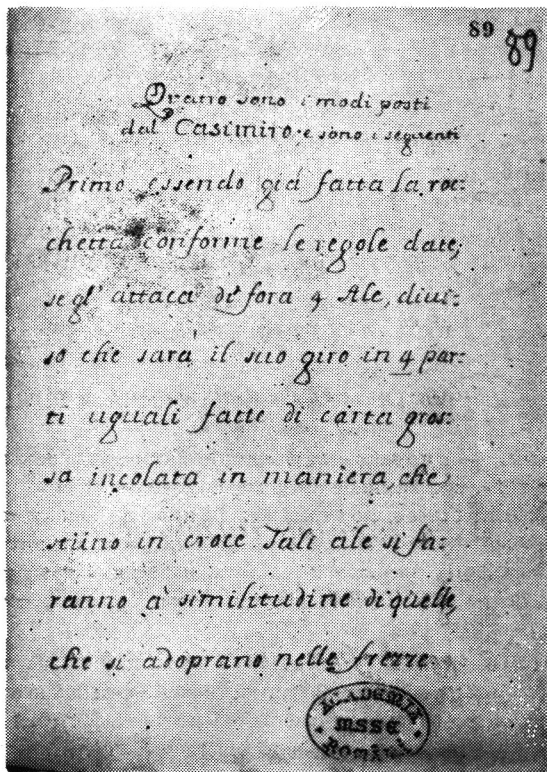 89 89
Qvatro sono i modi posti
dal Casimiro, e sono i seguenti
Primo essendo già fatta la roc:
chetta conforme le regole date;
se gl' attaca di fora 4 Ale, divi:
so che sarà il suo giro in 4 par:
ti uguali fatte di carta gros:
sa incolata in maniera, che
stiino in croce Tali ale si fa:
ranno à similitudine di quelle,
che si adoprano nelle frezze.
ACADEMIA
MSSE
ROMÂNĂ